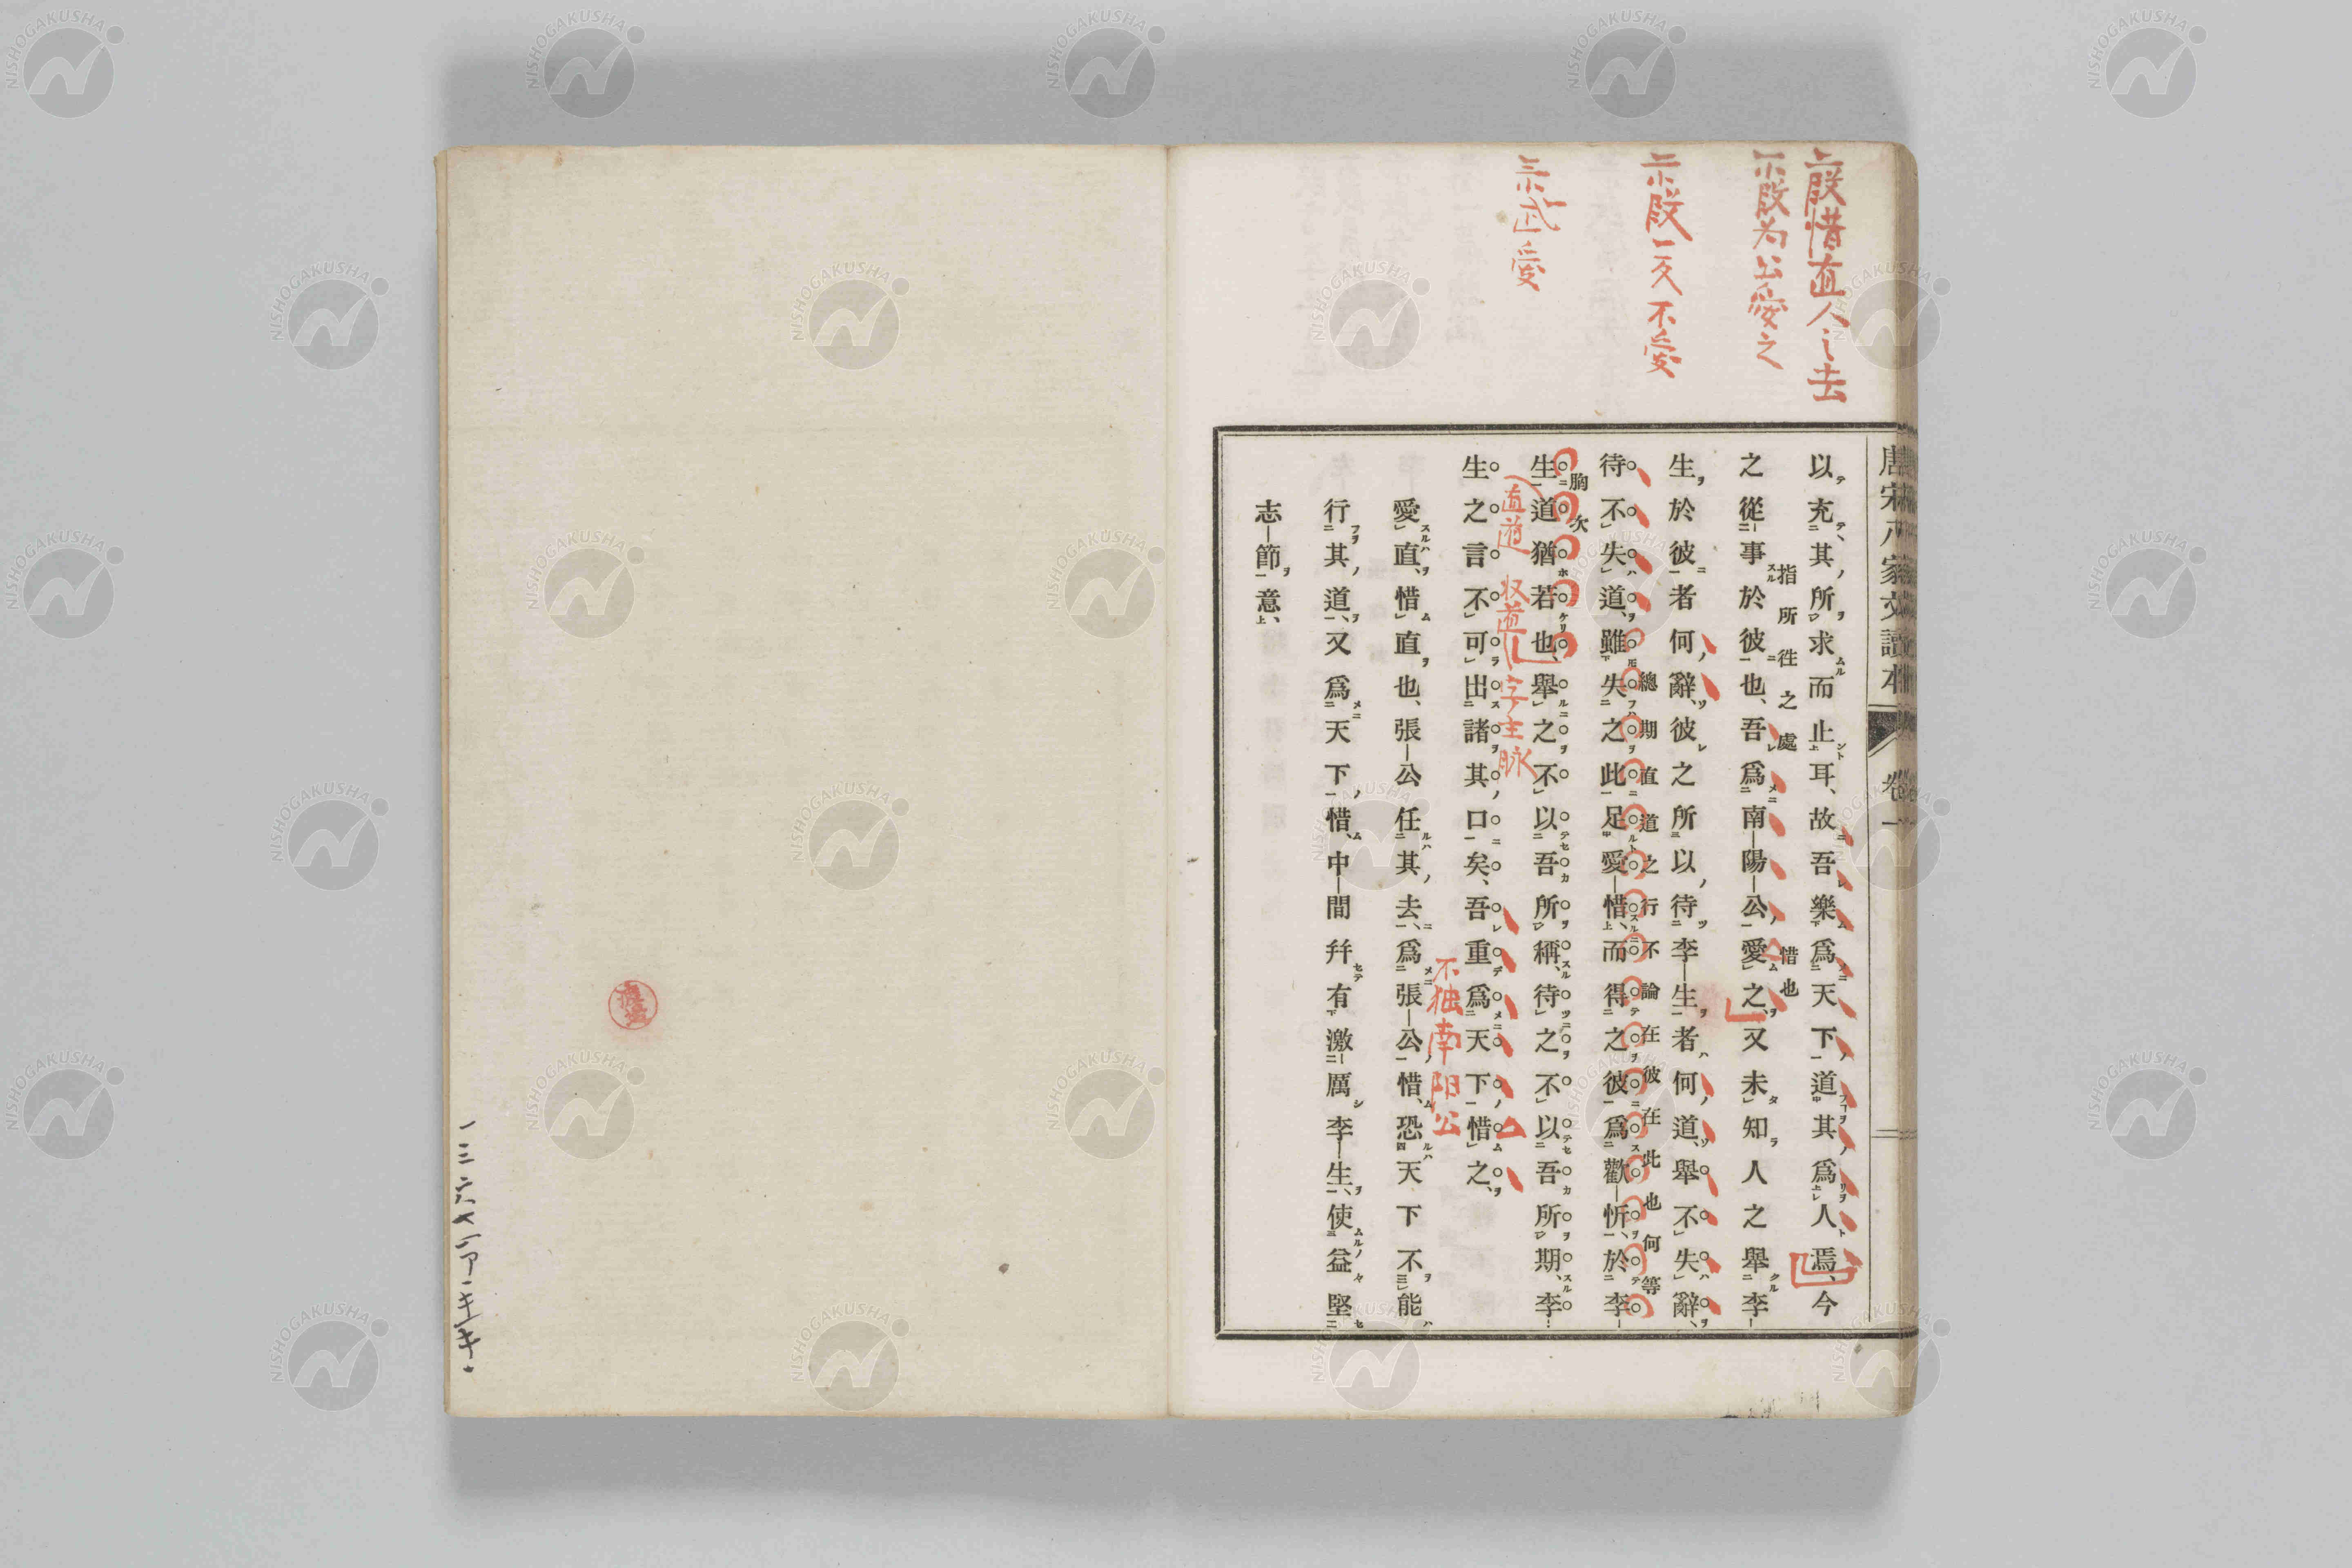 唐宋八家文讀本 卷一
以充其所求而止耳、故吾樂爲天下道其爲人焉、今
之從事於彼也、吾爲南陽公愛之、又未知人之舉李
指所往之處 惜也
生於彼者何辭、彼之所以待李生者何道、舉不失辭、
待不失道、雖失之此足愛惜、而得之彼爲歡忻、於李
總期直道之行不論在彼在此也何等
胸次
生道猶若也、舉之不以吾所稱、待之不以吾所期、李
生之言不可出諸其口矣、吾重爲天下惜之、
愛直、惜直也、張公任其去、爲張公惜、恐天下不能
行其道、又爲天下惜、中間幷有激厲李生、使益堅
志節意、
段惜直人之去
段为公愛之
段一
不独南阳公
字主脉
NISHOGAKUSHA